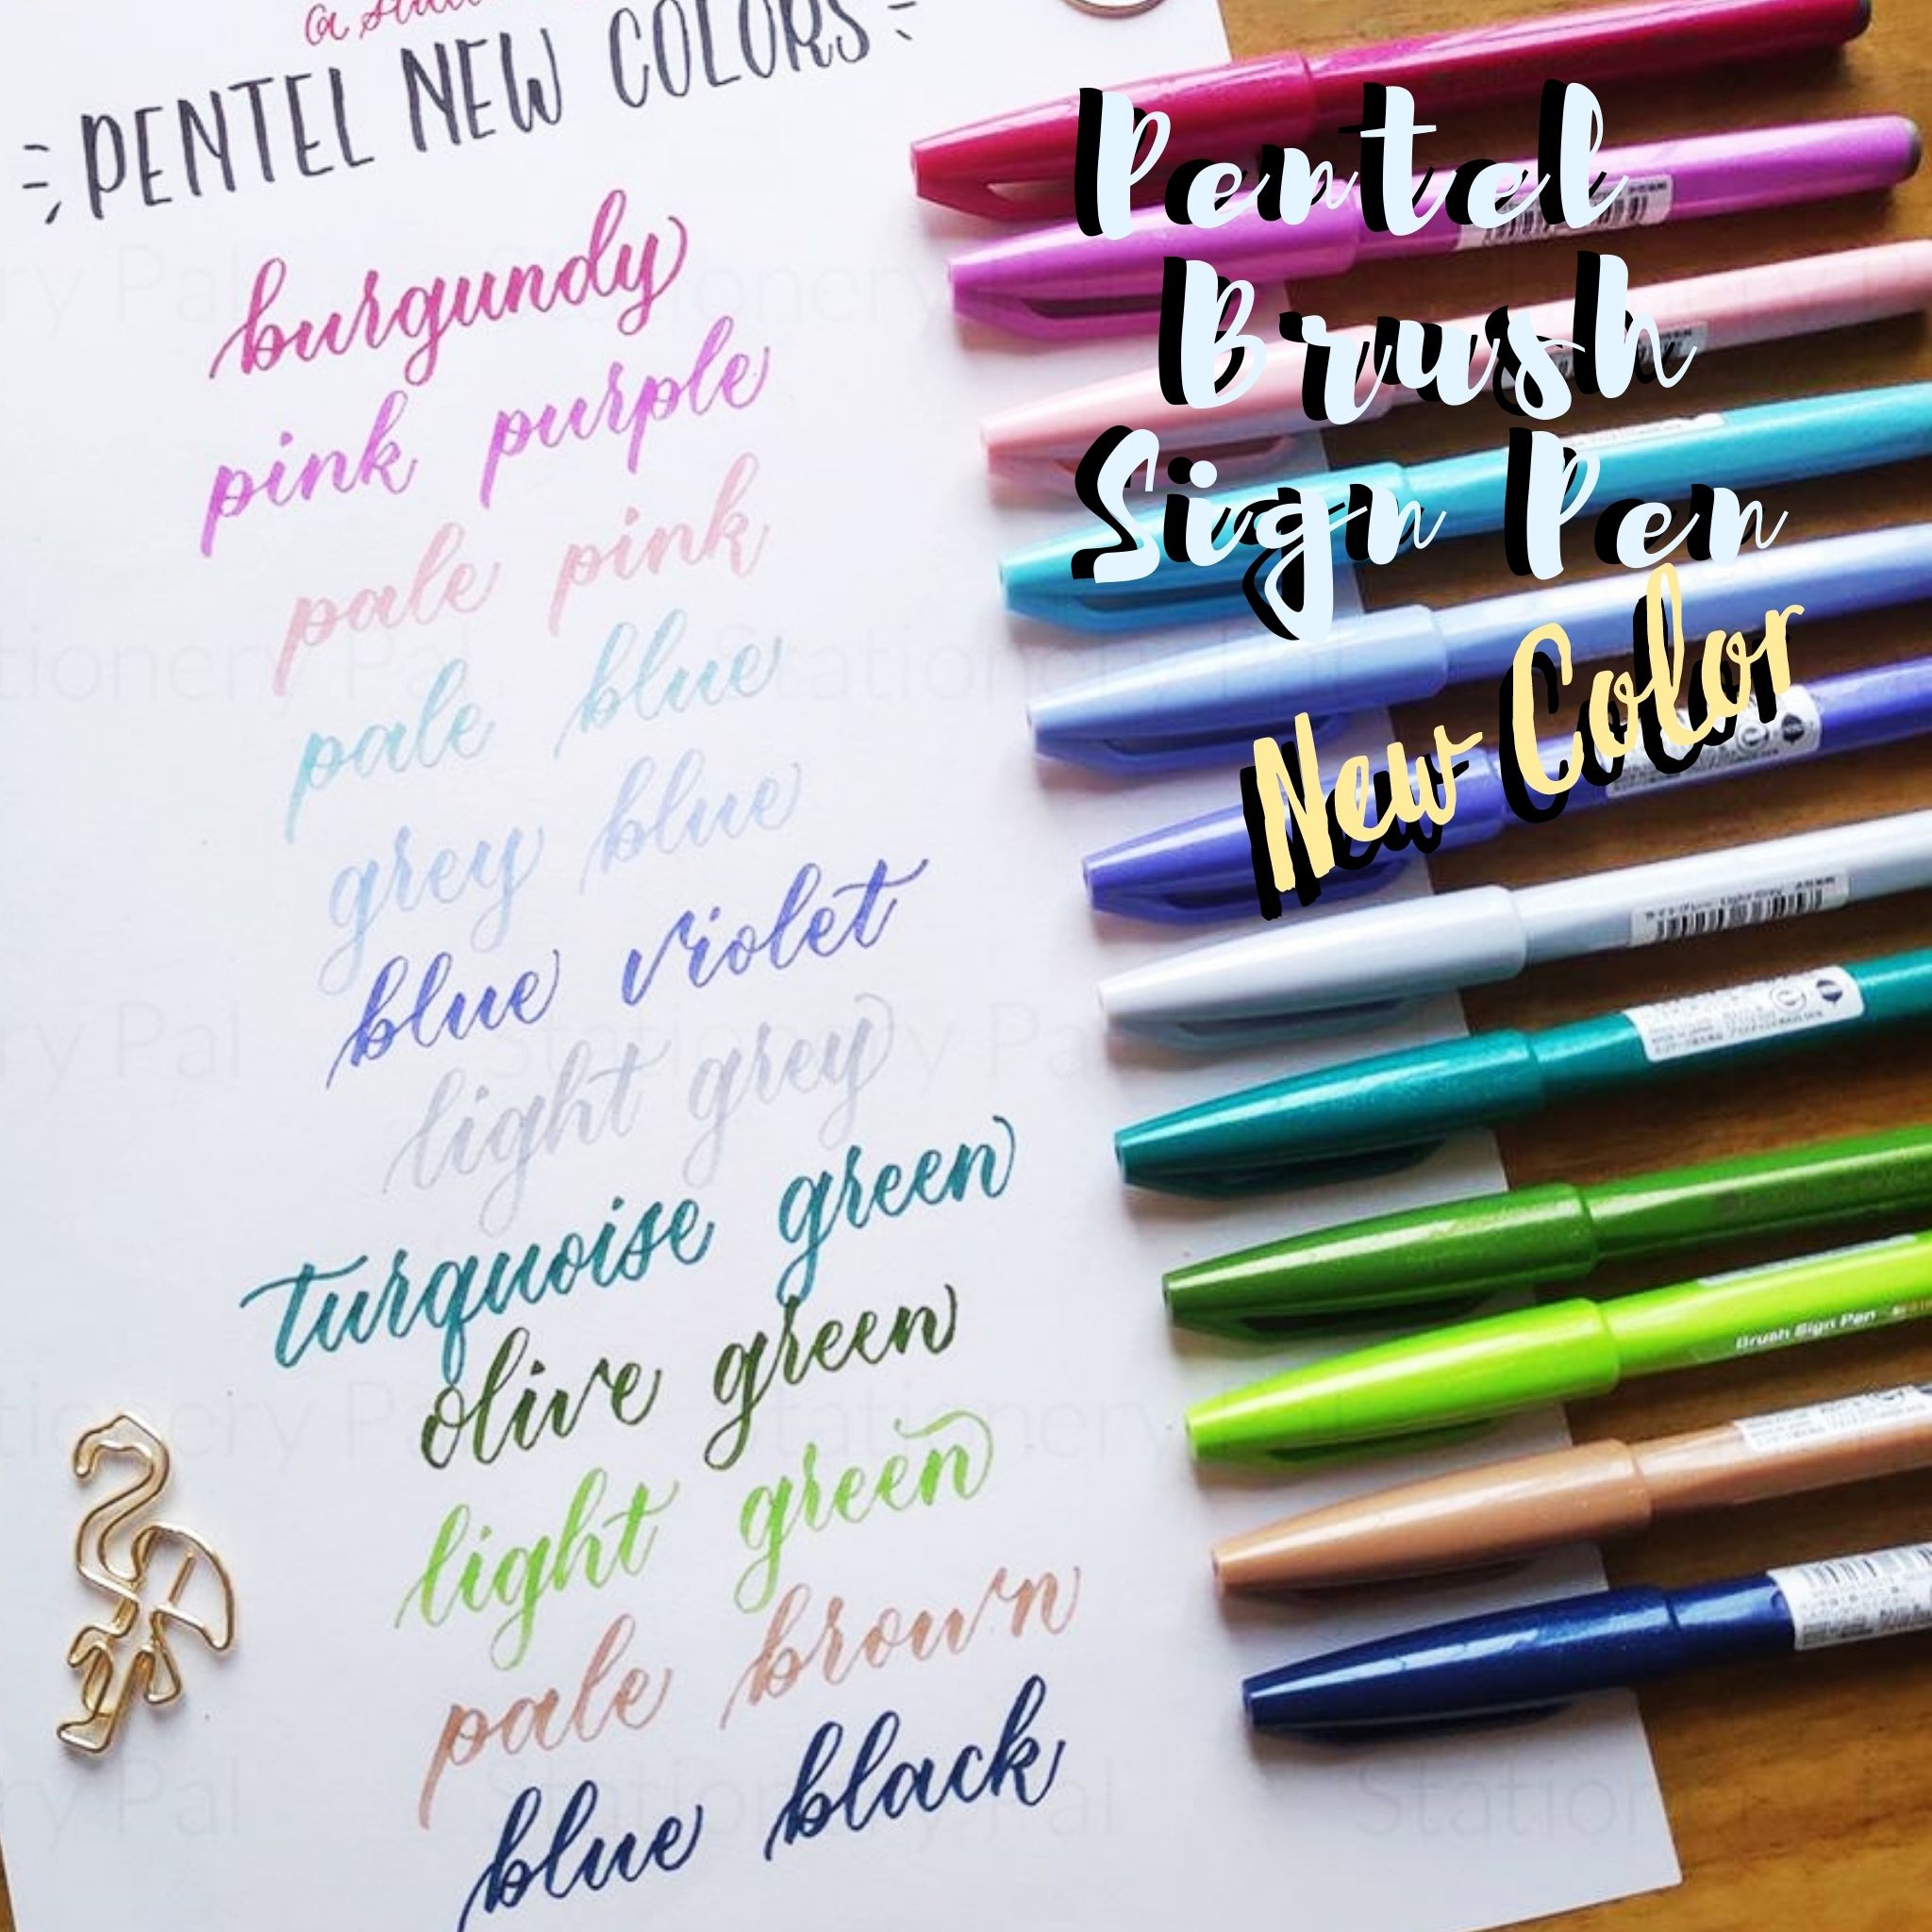 PENTEL NEW COLORS
burgundy
pink purple
pale pink
pale blue
grey blue
blue violet
light grey
turquoise green
olive green
light green
pale brown
blue black
Pentel
Brush
Sign Pen
New Color
Brush Sign Pen
Stationery Pal